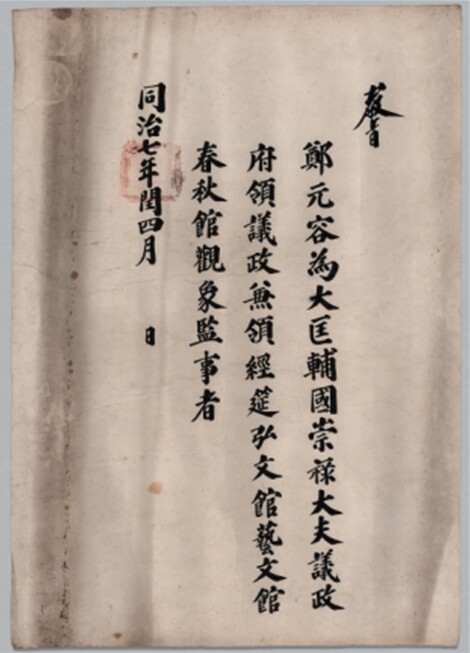 敎旨
鄭元容爲大匡輔國崇祿大夫議政
府領議政兼領經筵弘文館藝文館
春秋館觀象監事者
同治七年閏四月 日